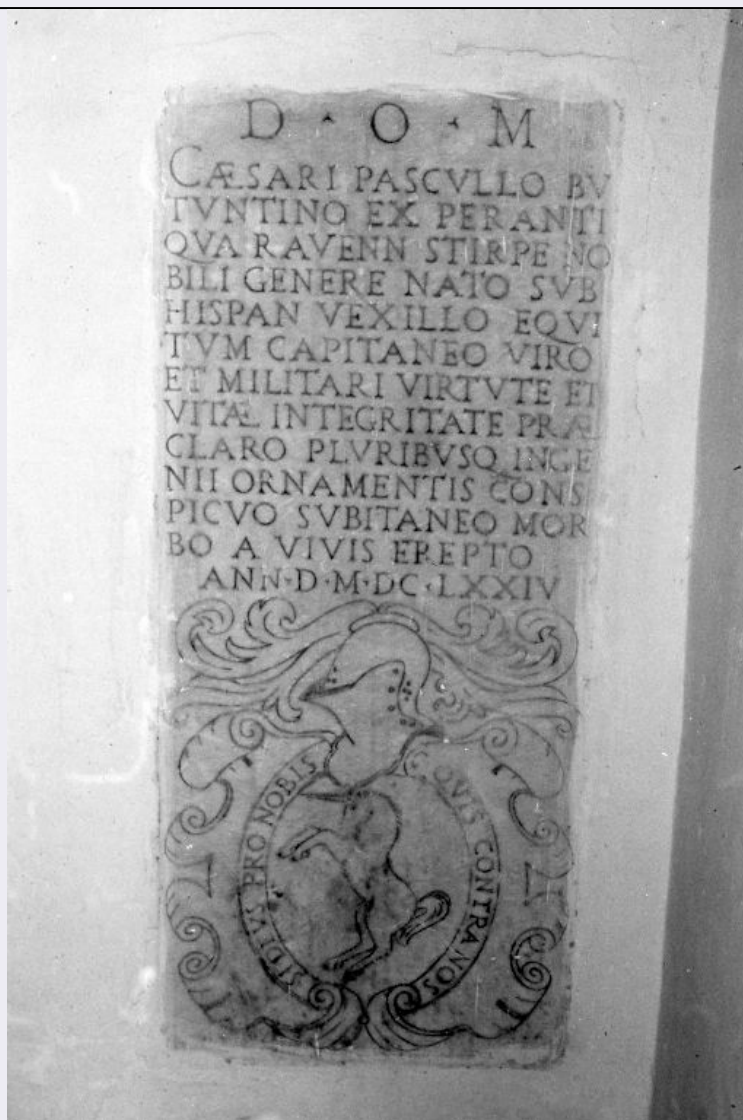 D · O · M
CÆSARI PASCVLLO BV
TVNTINO EX PERANTI
QVA RAVENN STIRPE NO
BILI GENERE NATO SVB
HISPAN VEXILLO EQVI
TVM CAPITANEO VIRO
ET MILITARI VIRTVTE ET
VITÆ INTEGRITATE PRÆ
CLARO PLVRIBVSQ INGE
NII ORNAMENTIS CONS
PICVO SVBITANEO MOR
BO A VIVIS EREPTO
ANN·D·M·DC·LXXIV
SIDIVS PRO NOBIS
QVIS CONTRA NOS